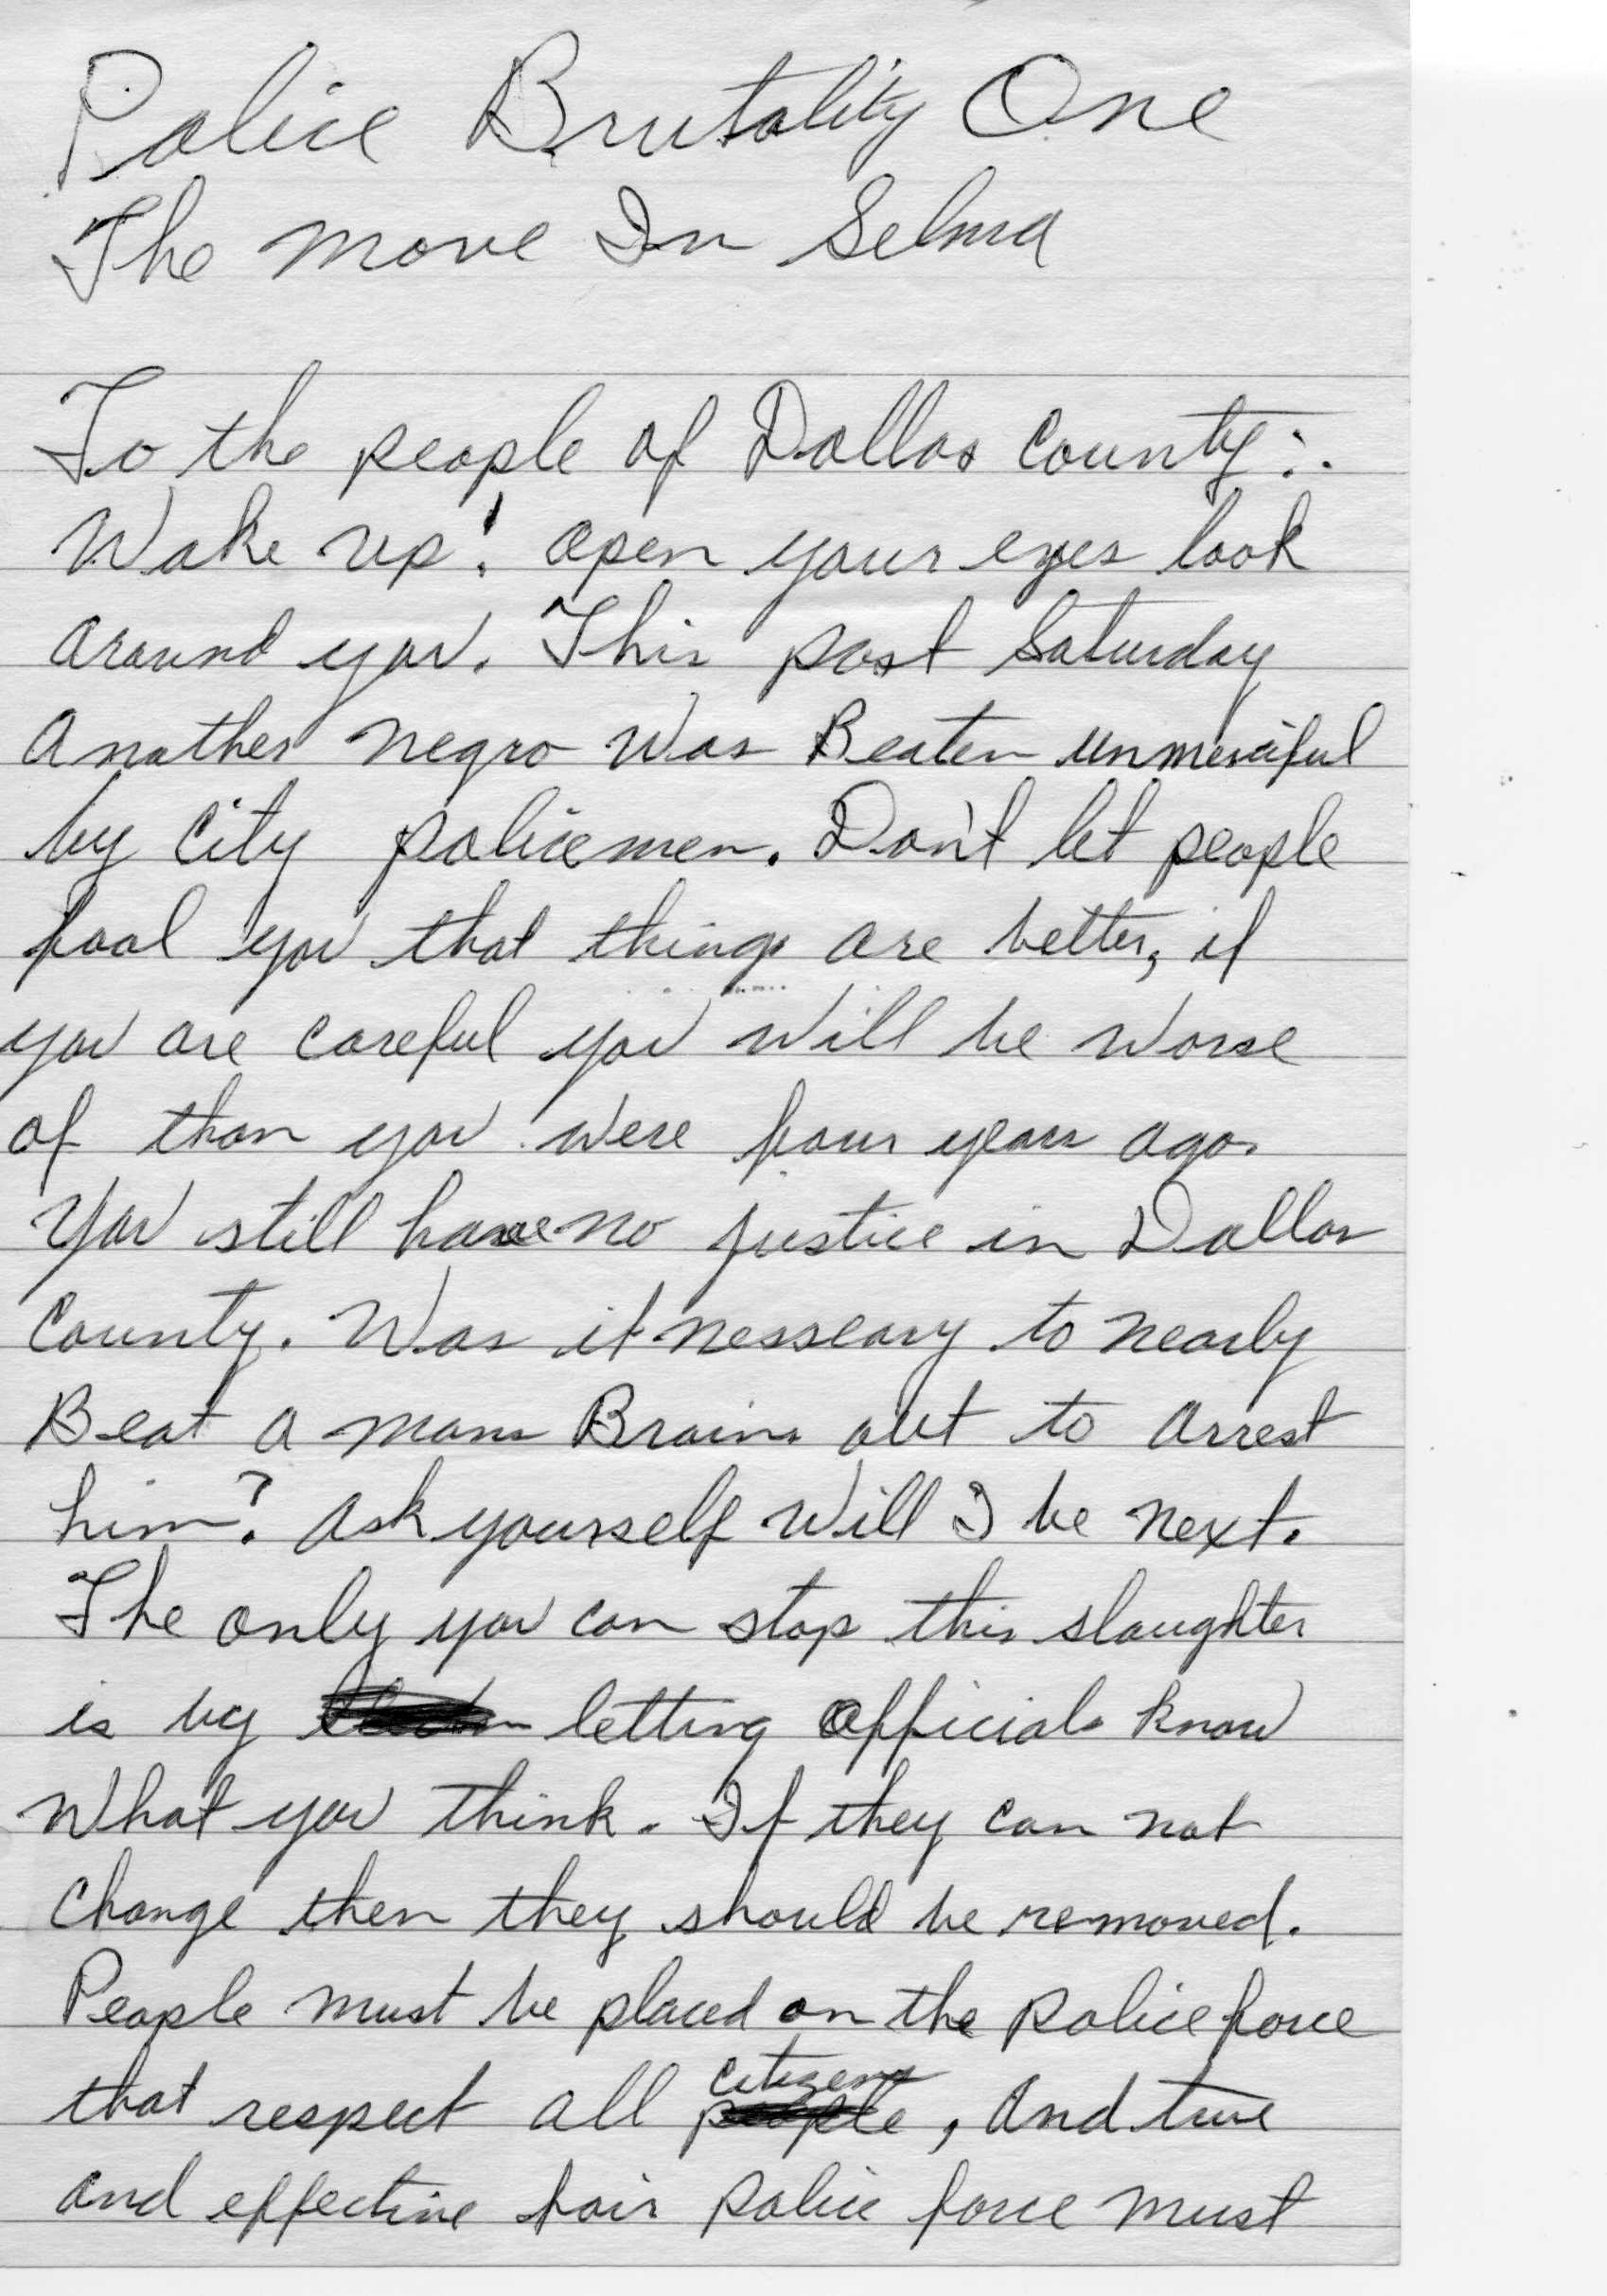 Police Brutality One
The Move In Selma
To the people of Dallas County:.
Wake up! Open your eyes look
around you. This past Saturday
Another negro was Beaten unmerciful
by City policemen. Don't let people
fool you that things are better, if
you are careful you will be worse
of than you were four years ago.
You still have no justice in Dallas
County. Was it nesseary to nearly
Beat a mans Brains out to arrest
him? Ask yourself will I be next.
The only you can stop this slaughter
is by letting officials know
what you think. If they can not
change then they should be removed.
People must be placed on the police force
that respect all people citizens, and true
and effective fair police force must